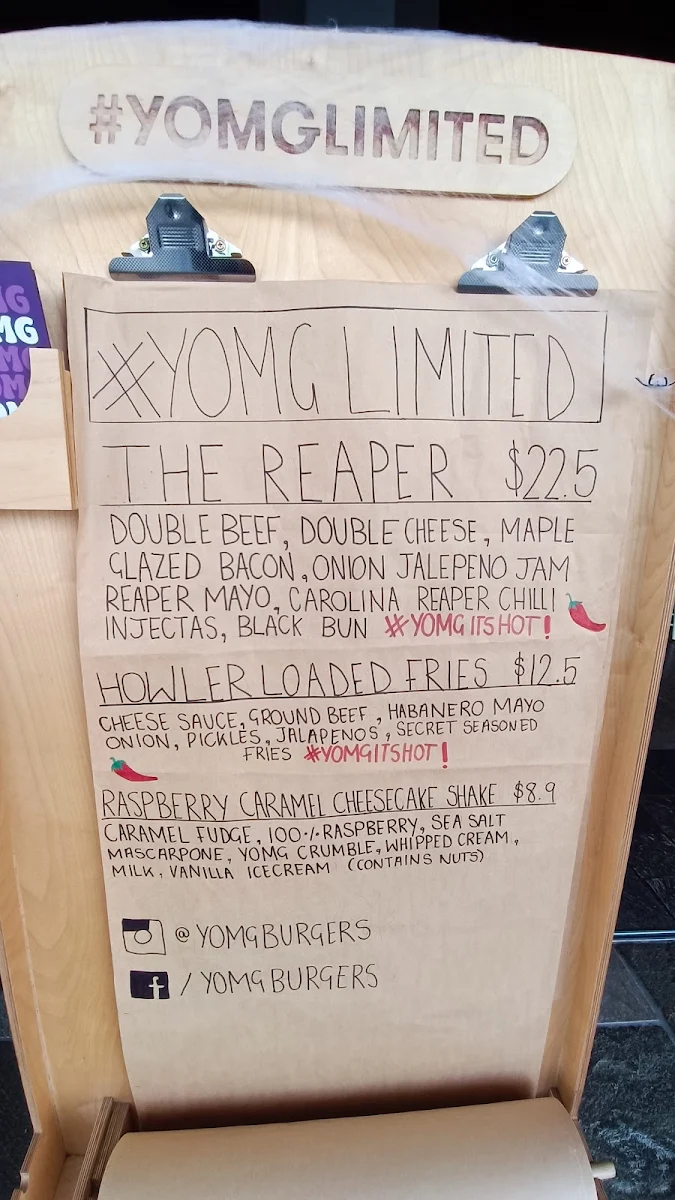 #YOMGLIMITED
#YOMG LIMITED
THE REAPER $22.5
DOUBLE BEEF, DOUBLE CHEESE, MAPLE
GLAZED BACON, ONION JALEPENO JAM
REAPER MAYO, CAROLINA REAPER CHILLI
INJECTAS, BLACK BUN #YOMGITSHOT!
HOWLER LOADED FRIES $12.5
CHEESE SAUCE, GROUND BEEF, HABANERO MAYO
ONION, PICKLES, JALAPENOS, SECRET SEASONED
FRIES #YOMGITSHOT!
RASPBERRY CARAMEL CHEESECAKE SHAKE $8.9
CARAMEL FUDGE, 100% RASPBERRY, SEA SALT
MASCARPONE, YOMG CRUMBLE, WHIPPED CREAM,
MILK, VANILLA ICECREAM (CONTAINS NUTS)
@YOMGBURGERS
f / YOMGBURGERS